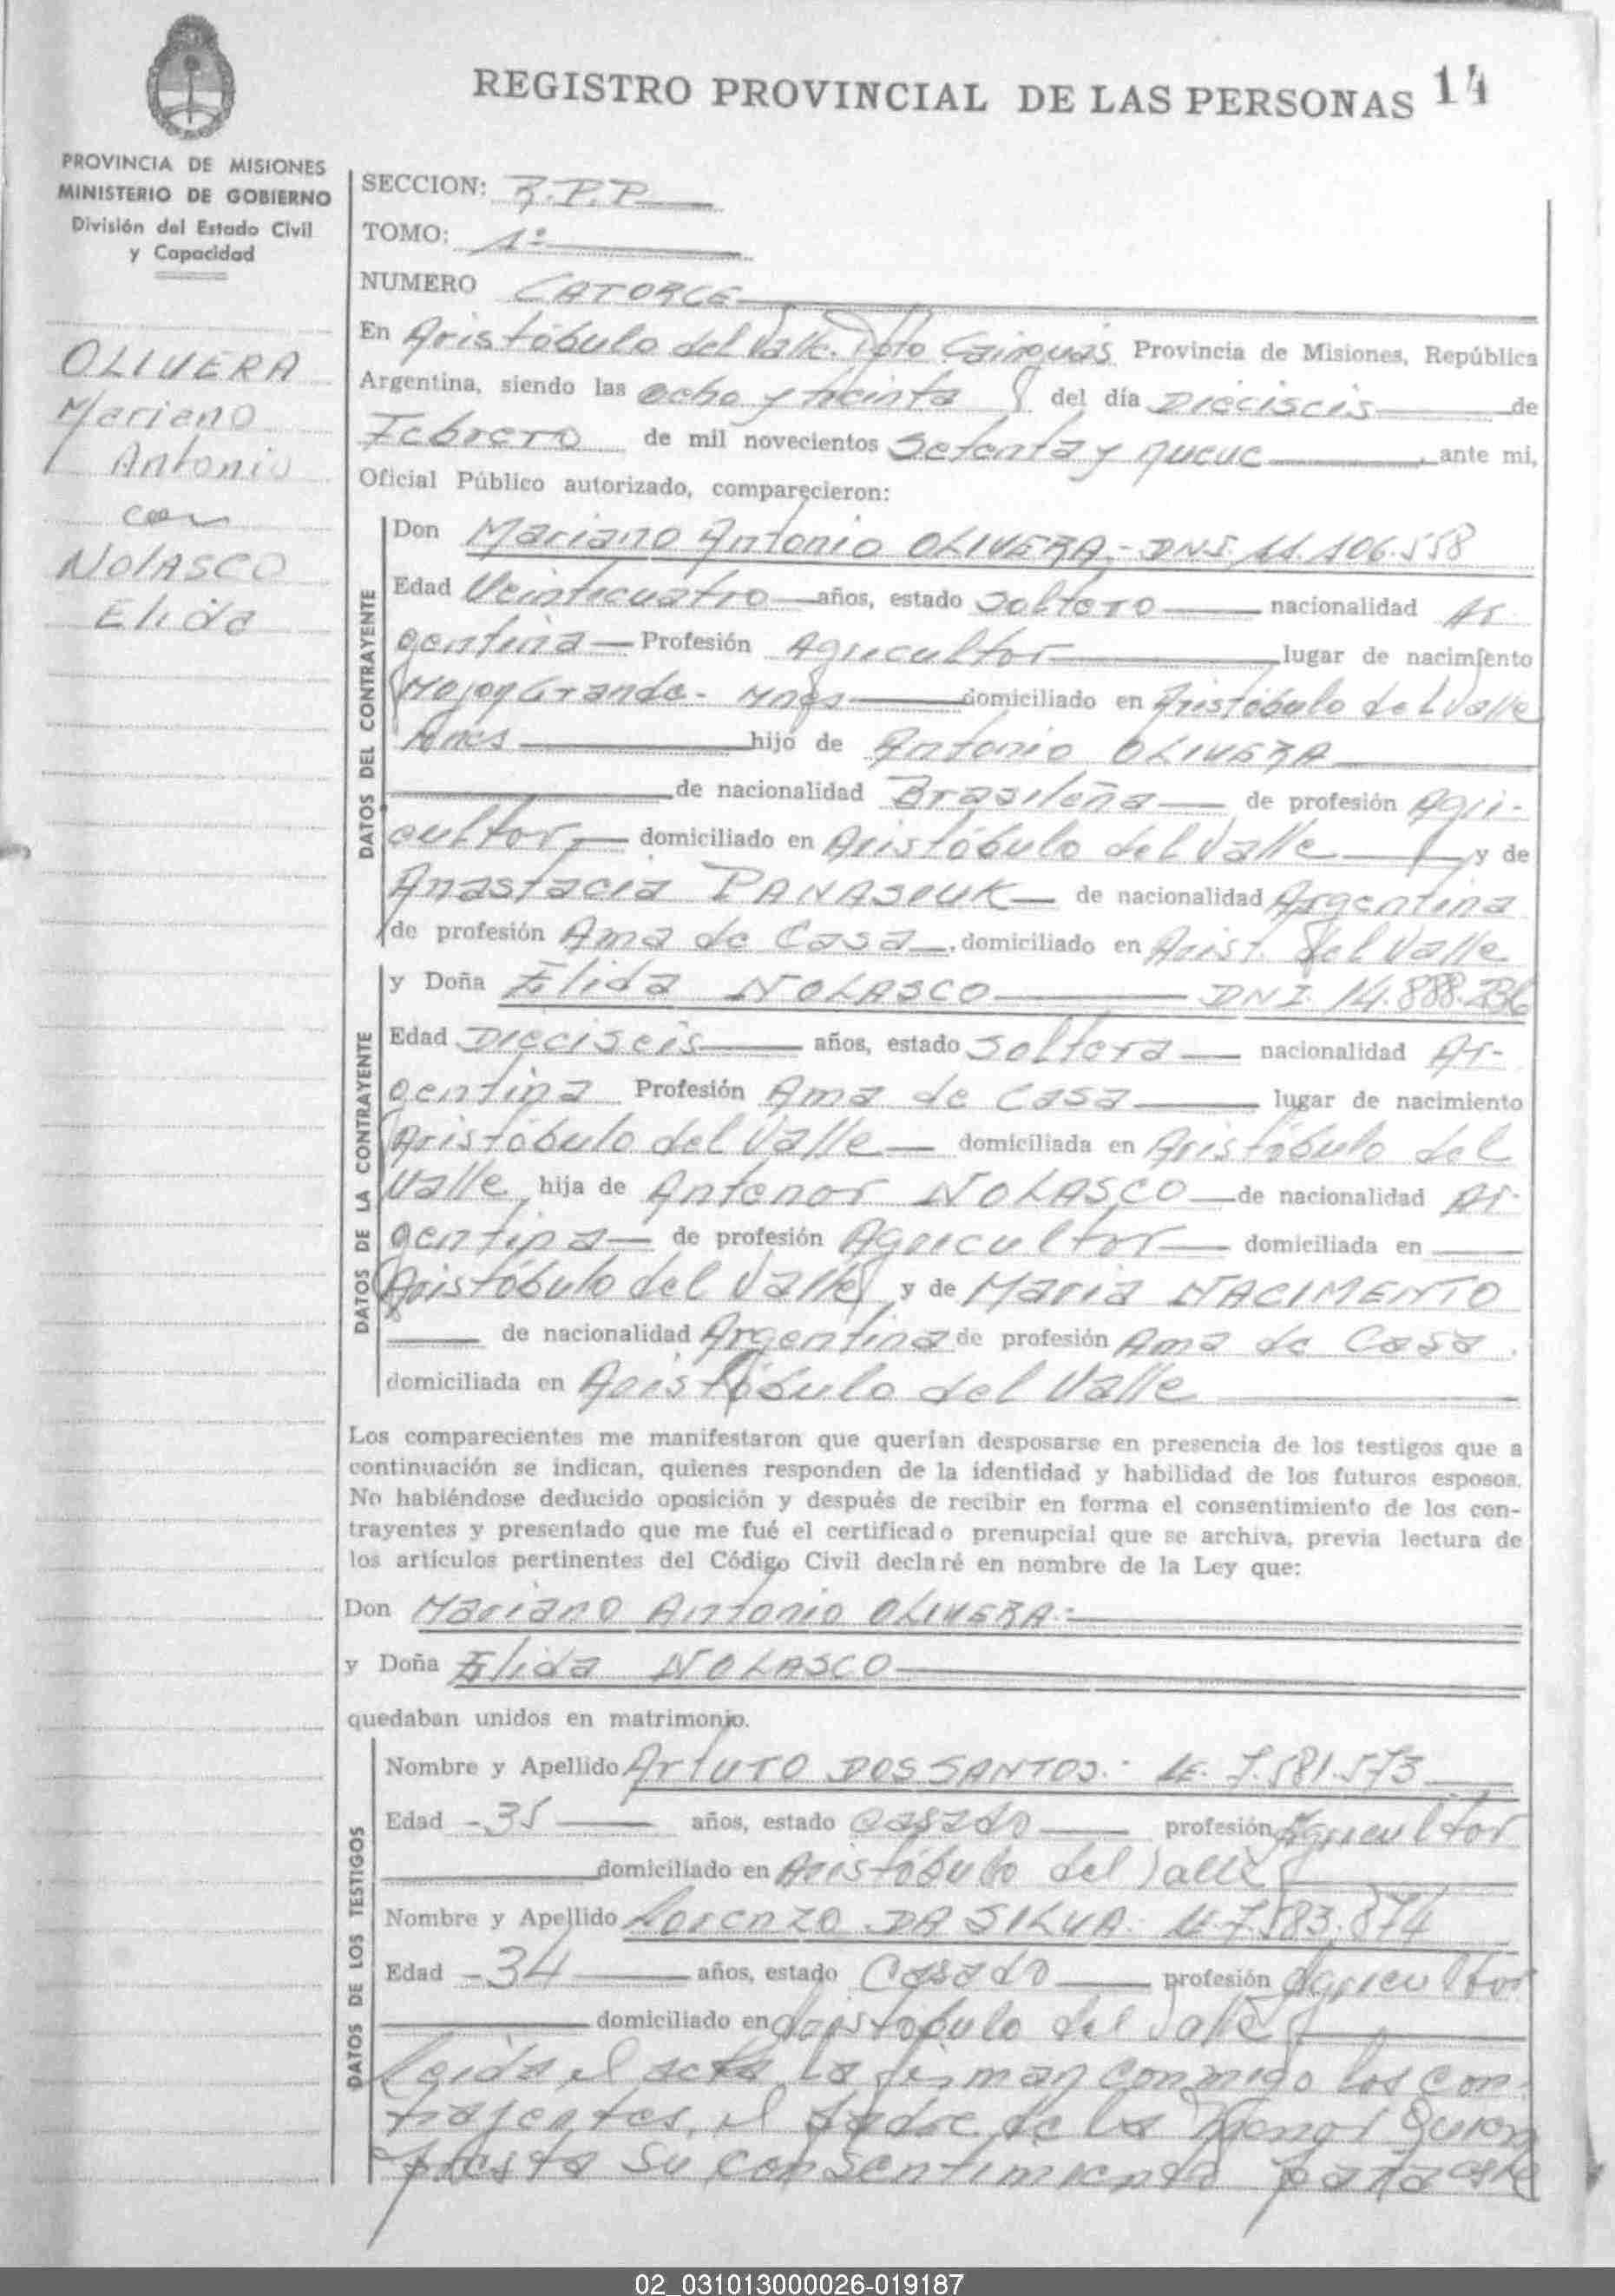 REGISTRO PROVINCIAL DE LAS PERSONAS 14
PROVINCIA DE MISIONES
MINISTERIO DE GOBIERNO
División del Estado Civil
y Capacidad
OLIVERA
Mariano
Antonio
con
NOLASCO
Elida
SECCION: R.P.P.
TOMO: 1º
NUMERO CATORCE
En Aristóbulo del Valle. Dpto Cainguás Provincia de Misiones, República
Argentina, siendo las ocho y treinta del día Dieciseis de
Febrero de mil novecientos Setenta y nueve, ante mi,
Oficial Público autorizado, comparecieron:
DATOS DEL CONTRAYENTE
Don Mariano Antonio OLIVERA.- DNI. 11.106.558
Edad Veinticuatro años, estado Soltero nacionalidad Ar
gentina Profesión Agricultor lugar de nacimiento
Mojon Grande - Mnes domiciliado en Aristóbulo del Valle
Mnes hijo de Antonio OLIVERA
de nacionalidad Brasileña de profesión Agri-
cultor domiciliado en Aristóbulo del Valle y de
Anastacia PANASIUK de nacionalidad Argentina
de profesión Ama de Casa, domiciliado en Arist. del Valle
DATOS DE LA CONTRAYENTE
y Doña Elida NOLASCO DNI. 14.888.236
Edad Dieciseis años, estado Soltera nacionalidad Ar-
gentina Profesión Ama de Casa lugar de nacimiento
Aristóbulo del Valle domiciliada en Aristóbulo del
Valle, hija de Antenor NOLASCO de nacionalidad Ar-
gentina de profesión Agricultor domiciliada en
Aristóbulo del Valle y de Maria NACIMENTO
de nacionalidad Argentina de profesión Ama de Casa.
domiciliada en Aristóbulo del Valle
Los comparecientes me manifestaron que querían desposarse en presencia de los testigos que a
continuación se indican, quienes responden de la identidad y habilidad de los futuros esposos.
No habiéndose deducido oposición y después de recibir en forma el consentimiento de los con-
trayentes y presentado que me fué el certificado prenupcial que se archiva, previa lectura de
los artículos pertinentes del Código Civil declaré en nombre de la Ley que:
Don Mariano Antonio OLIVERA.-
y Doña Elida NOLASCO
quedaban unidos en matrimonio.
DATOS DE LOS TESTIGOS
Nombre y Apellido Arturo DOS SANTOS.- LE. 7.581.573
Edad -35 años, estado Casado profesión Agricultor
domiciliado en Aristóbulo del Valle
Nombre y Apellido Lorenzo DA SILVA. LE. 7.583.874
Edad -34 años, estado Casado profesión Agricultor
domiciliado en Aristóbulo del Valle
Leida el acta la firman conmigo los con-
trayentes, el padre de la menor quien
presta su consentimiento para este
02_031013000026-019187